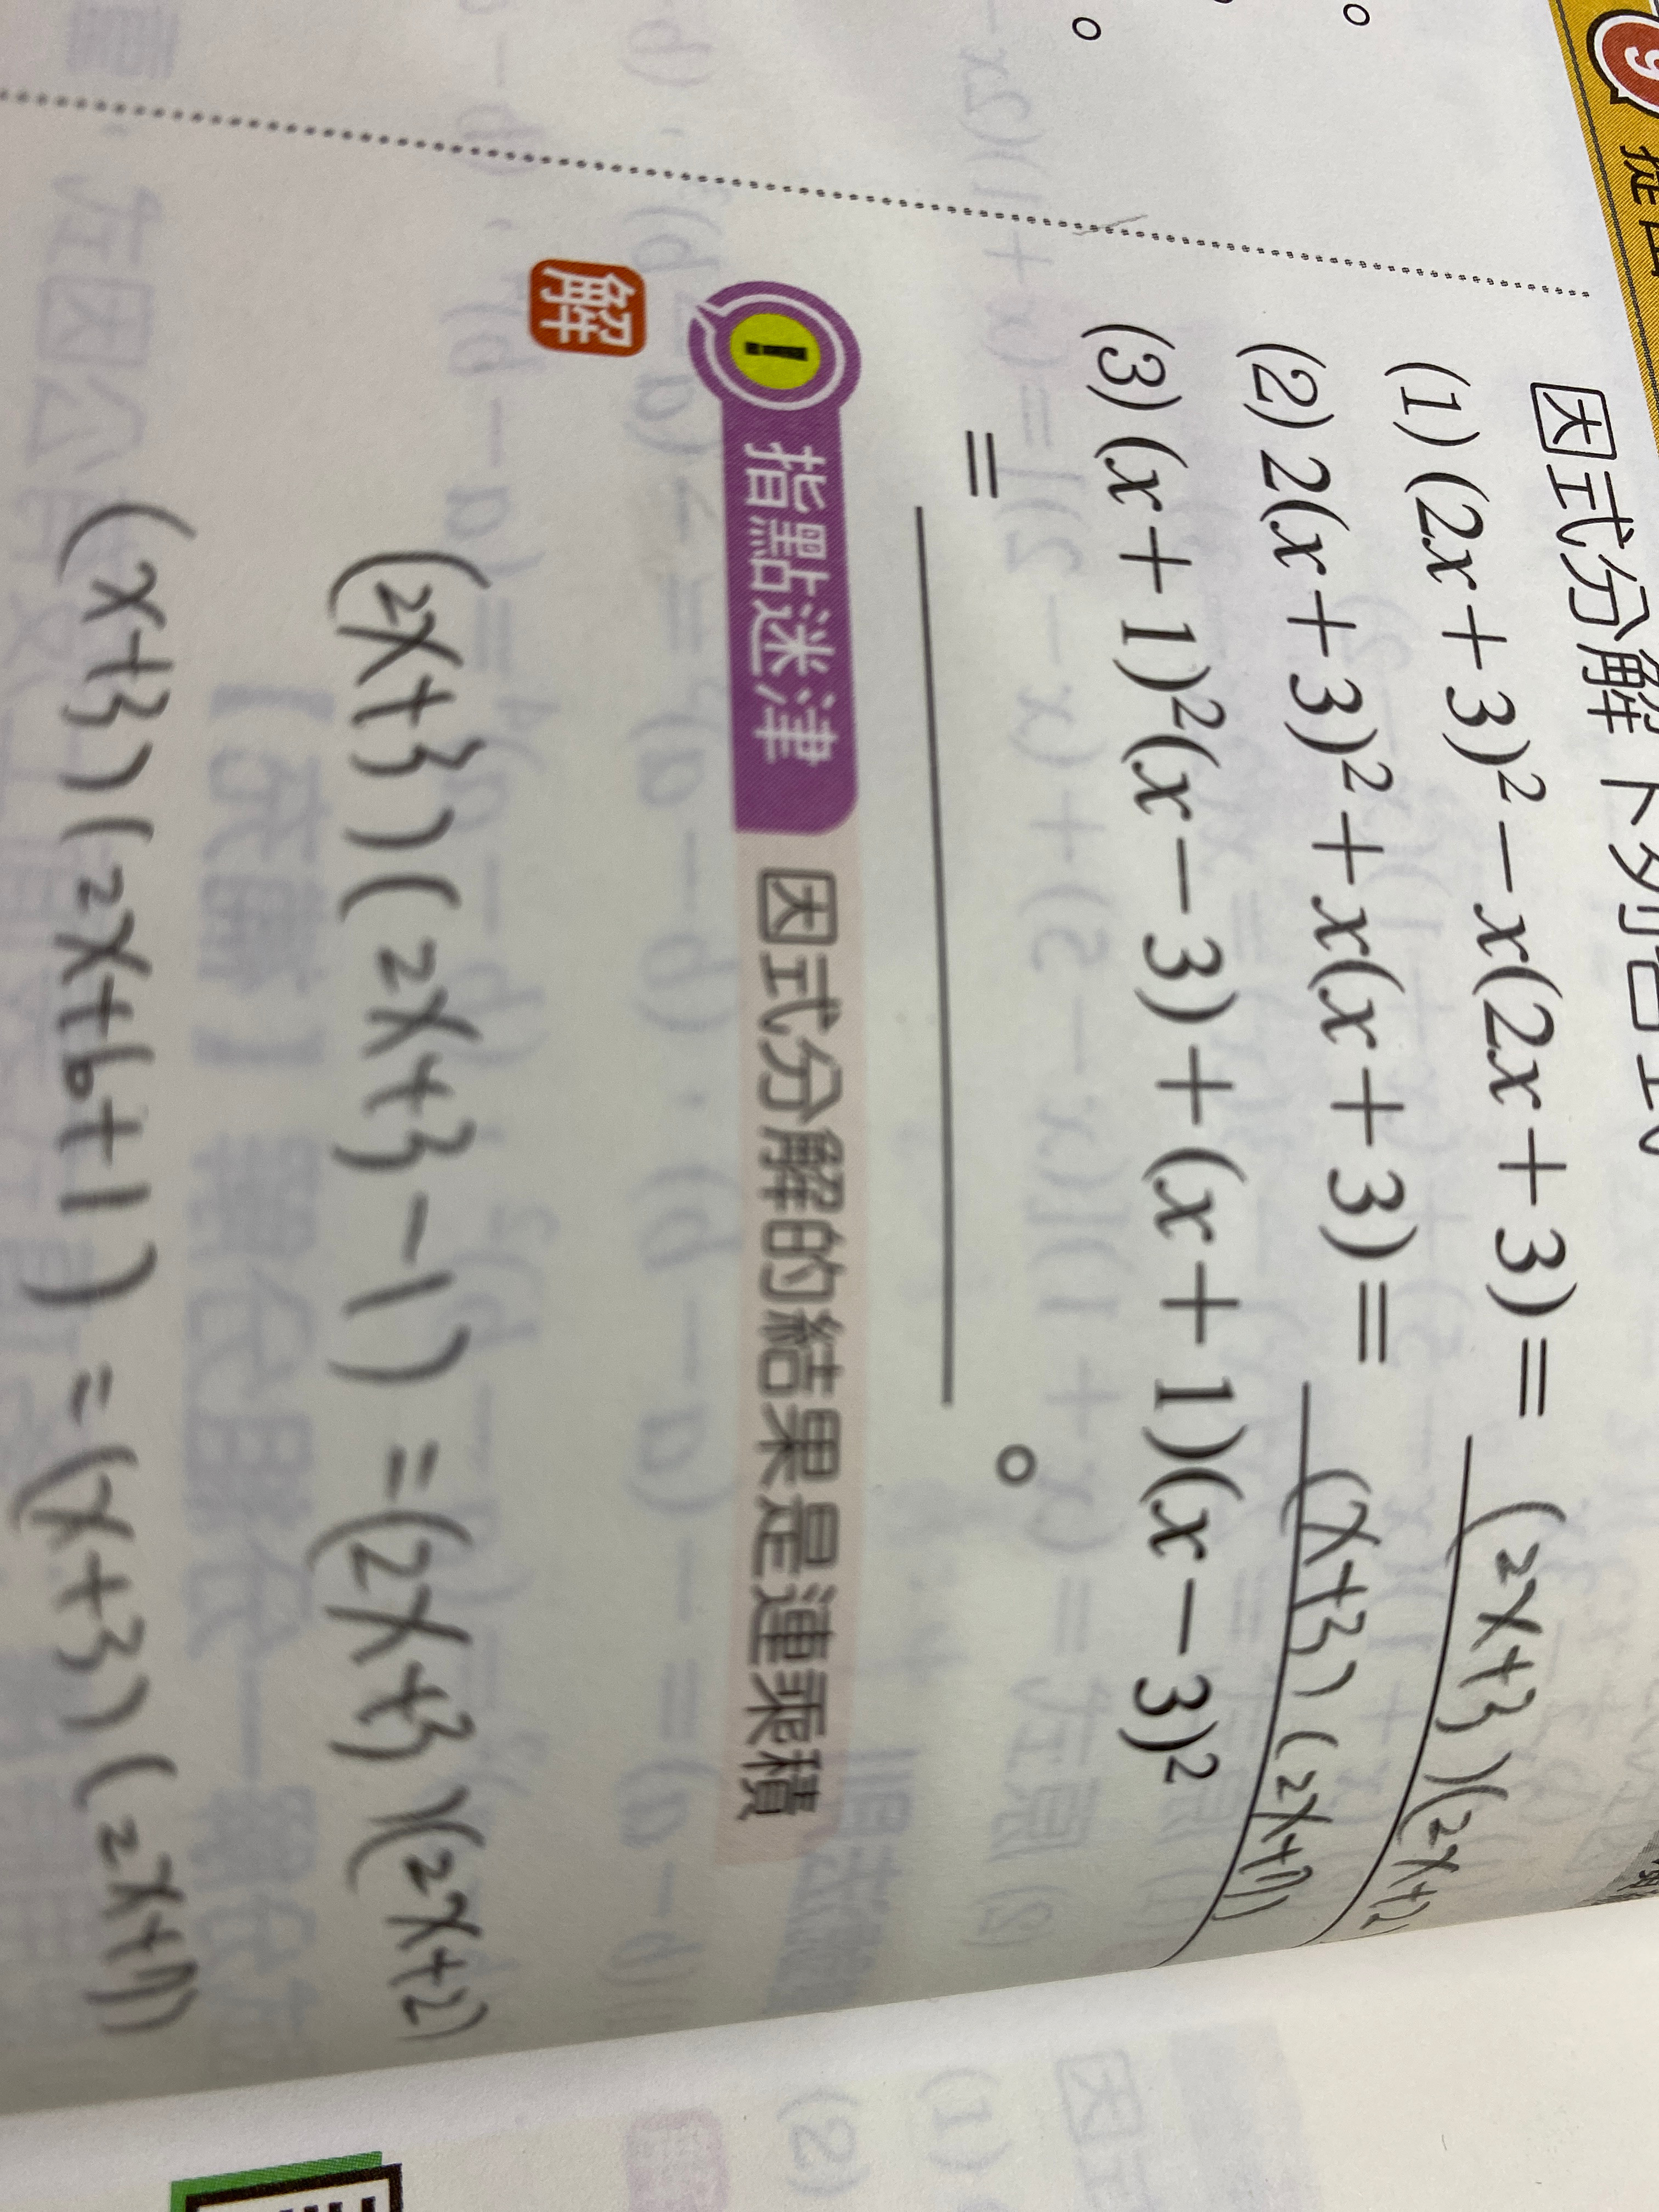 因式分解下列各式
(1) (2x+3)²-x(2x+3)= (2x+3)(2x+2)
(2) 2(x+3)²+x(x+3)= (x+3)(2x+7)
(3) (x+1)²(x-3)+(x+1)(x-3)²
= 。
! 指點迷津 因式分解的結果是連乘積
解
(2x+3)(2x+3-1)=(2x+3)(2x+2)
(x+3)(2x+6+1)=(x+3)(2x+7)